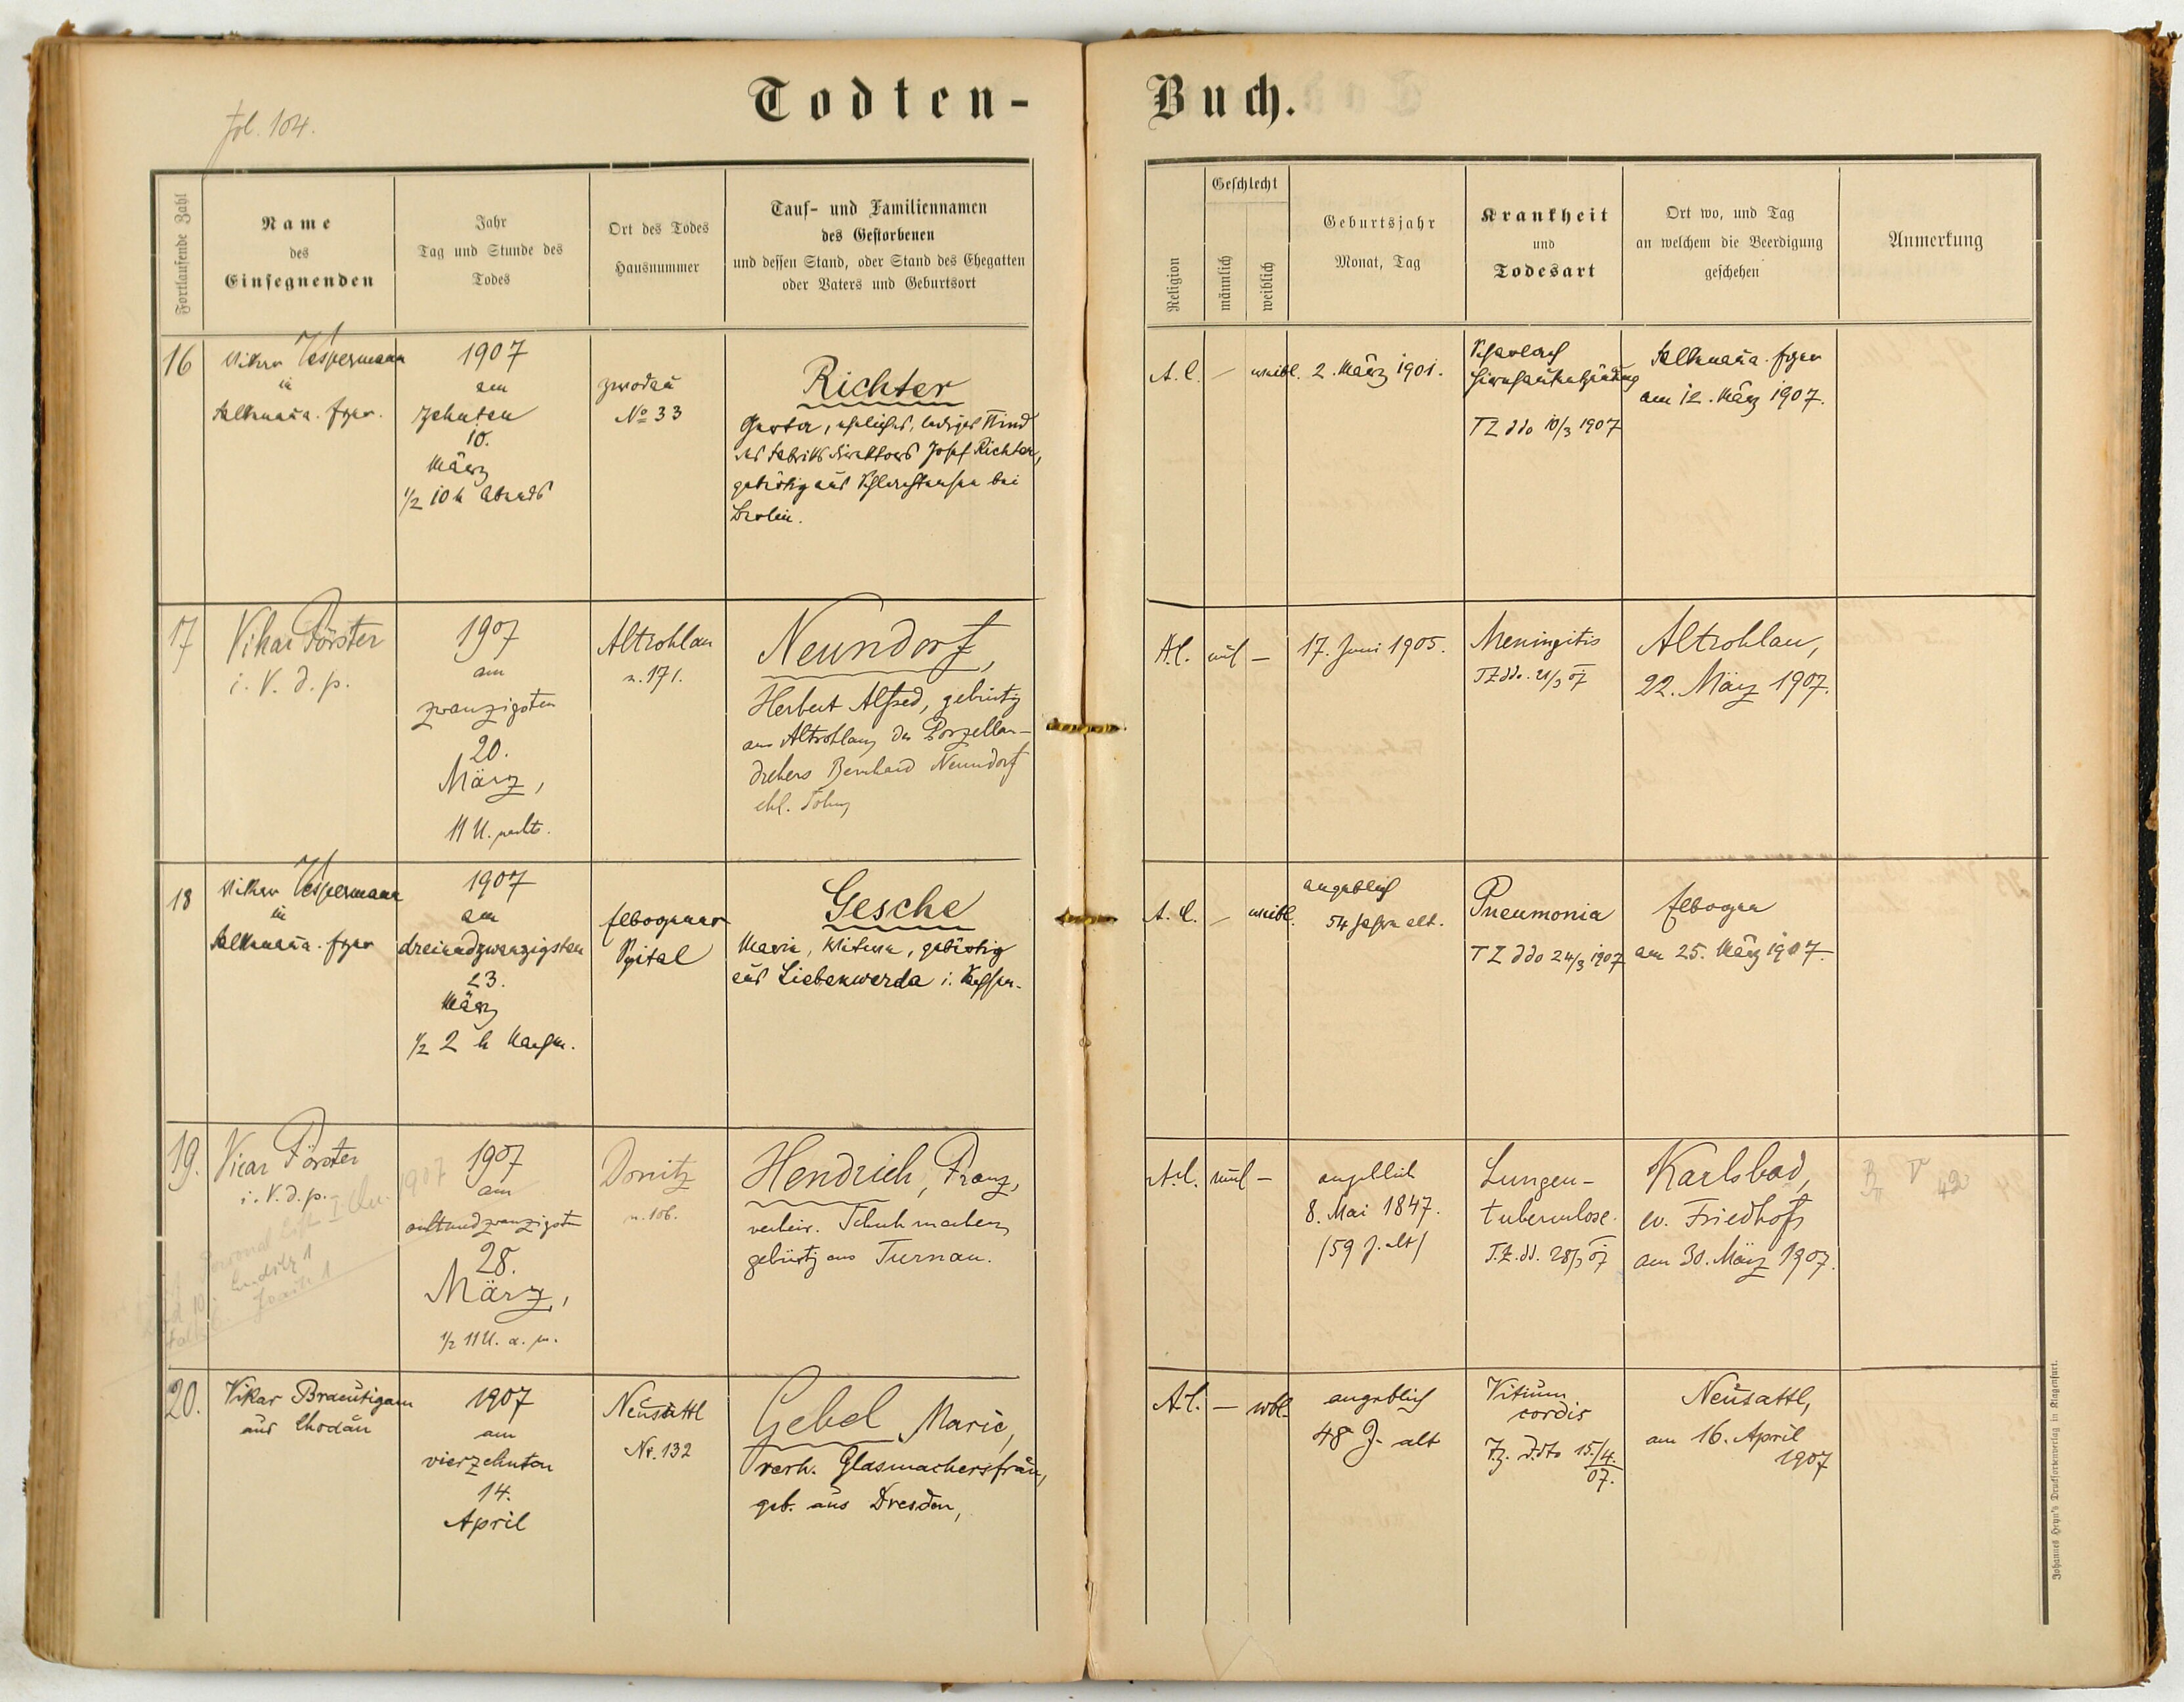 Todten-
Buch.
fol. 104.
Fortlaufende Zahl
Name
des
Einsegnenden
Jahr
Tag und Stunde des
Todes
Ort des Todes
Hausnummer
Tauf- und Familiennamen
des Gestorbenen
und dessen Stand, oder Stand des Ehegatten
oder Vaters und Geburtsort
Religion
Geschlecht
männlich
weiblich
Geburtsjahr
Monat, Tag
Krankheit
und
Todesart
Ort wo, und Tag
an welchem die Beerdigung
geschehen
Anmerkung
16
Vikar Vespermann
in
Falkenau a. Eger.
1907
am
zehnten
10.
März
1/2 10 h Abends
Zwodau
No 33
Richter
ehelicher, lediges Kind
des Fabriksdirektors Josef Richter,
gebürtig aus bei
Berlin.
A. C.
—
weibl.
2. März 1901.
Scharlach
Hirnhautentzündung
TZ ddo 10/3 1907
Falkenau a. Eger
am 12. März 1907.
17
Vikar Förster
i. V. d. p.
1907
am
zwanzigsten
20.
März,
11 U. nachts.
Altrohlau
n. 171.
Neundorf,
Herbert Alfred, gebürtig
aus Altrohlau, des Porzellan-
drehers Bernhard Neundorf
ehl. Sohn,
A.C.
ml
—
17. Juni 1905.
Meningitis
TZ ddo. 21/3 07
Altrohlau,
22. März 1907.
18
Vikar Vespermann
in
Falkenau a. Eger
1907
am
dreiundzwanzigsten
23.
März
1/2 2 h Morgen.
Elbogener
Spital
Gesche
Marie, Witwe, gebürtig
aus Liebenwerda i. Sachsen.
A. C.
—
weibl.
angeblich
54 Jahre alt.
Pneumonia
TZ ddo 24/3 1907
Elbogen
am 25. März 1907.
19.
Vicar Förster
i. V. d. p.
1907
am
achtundzwanzigsten
28.
März,
1/2 11 U. a. m.
Donitz
n. 106.
Hendrich, Franz,
verheir. Schuhmacher,
gebürtig aus Turnau.
A.C.
ml
—
angeblich
8. Mai 1847.
(59 J. alt)
Lungen-
tuberculose.
T.Z. dd. 28/3 07
Karlsbad,
ev. Friedhof,
am 30. März 1907.
20.
Vikar Bräutigam
aus Chodau
1907
am
vierzehnten
14.
April
Neusattl
Nr. 132
Gebel Marie,
verh. Glasmachersfrau,
geb. aus Dresden,
A.C.
—
wbl.
angeblich
48 J. alt
Vitium
cordis
Tz. ddto 15./4.
07.
Neusattl,
am 16. April
1907
Johannes Heyn's Drucksortenverlag in Klagenfurt.